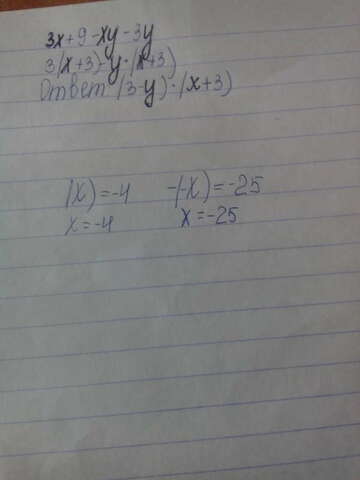 3x+9-xy-3y
3(x+3)-y·(x+3)
Ответ (3-y)·(x+3)
(x)=-4 -(-x)=-25
x=-4 x=-25